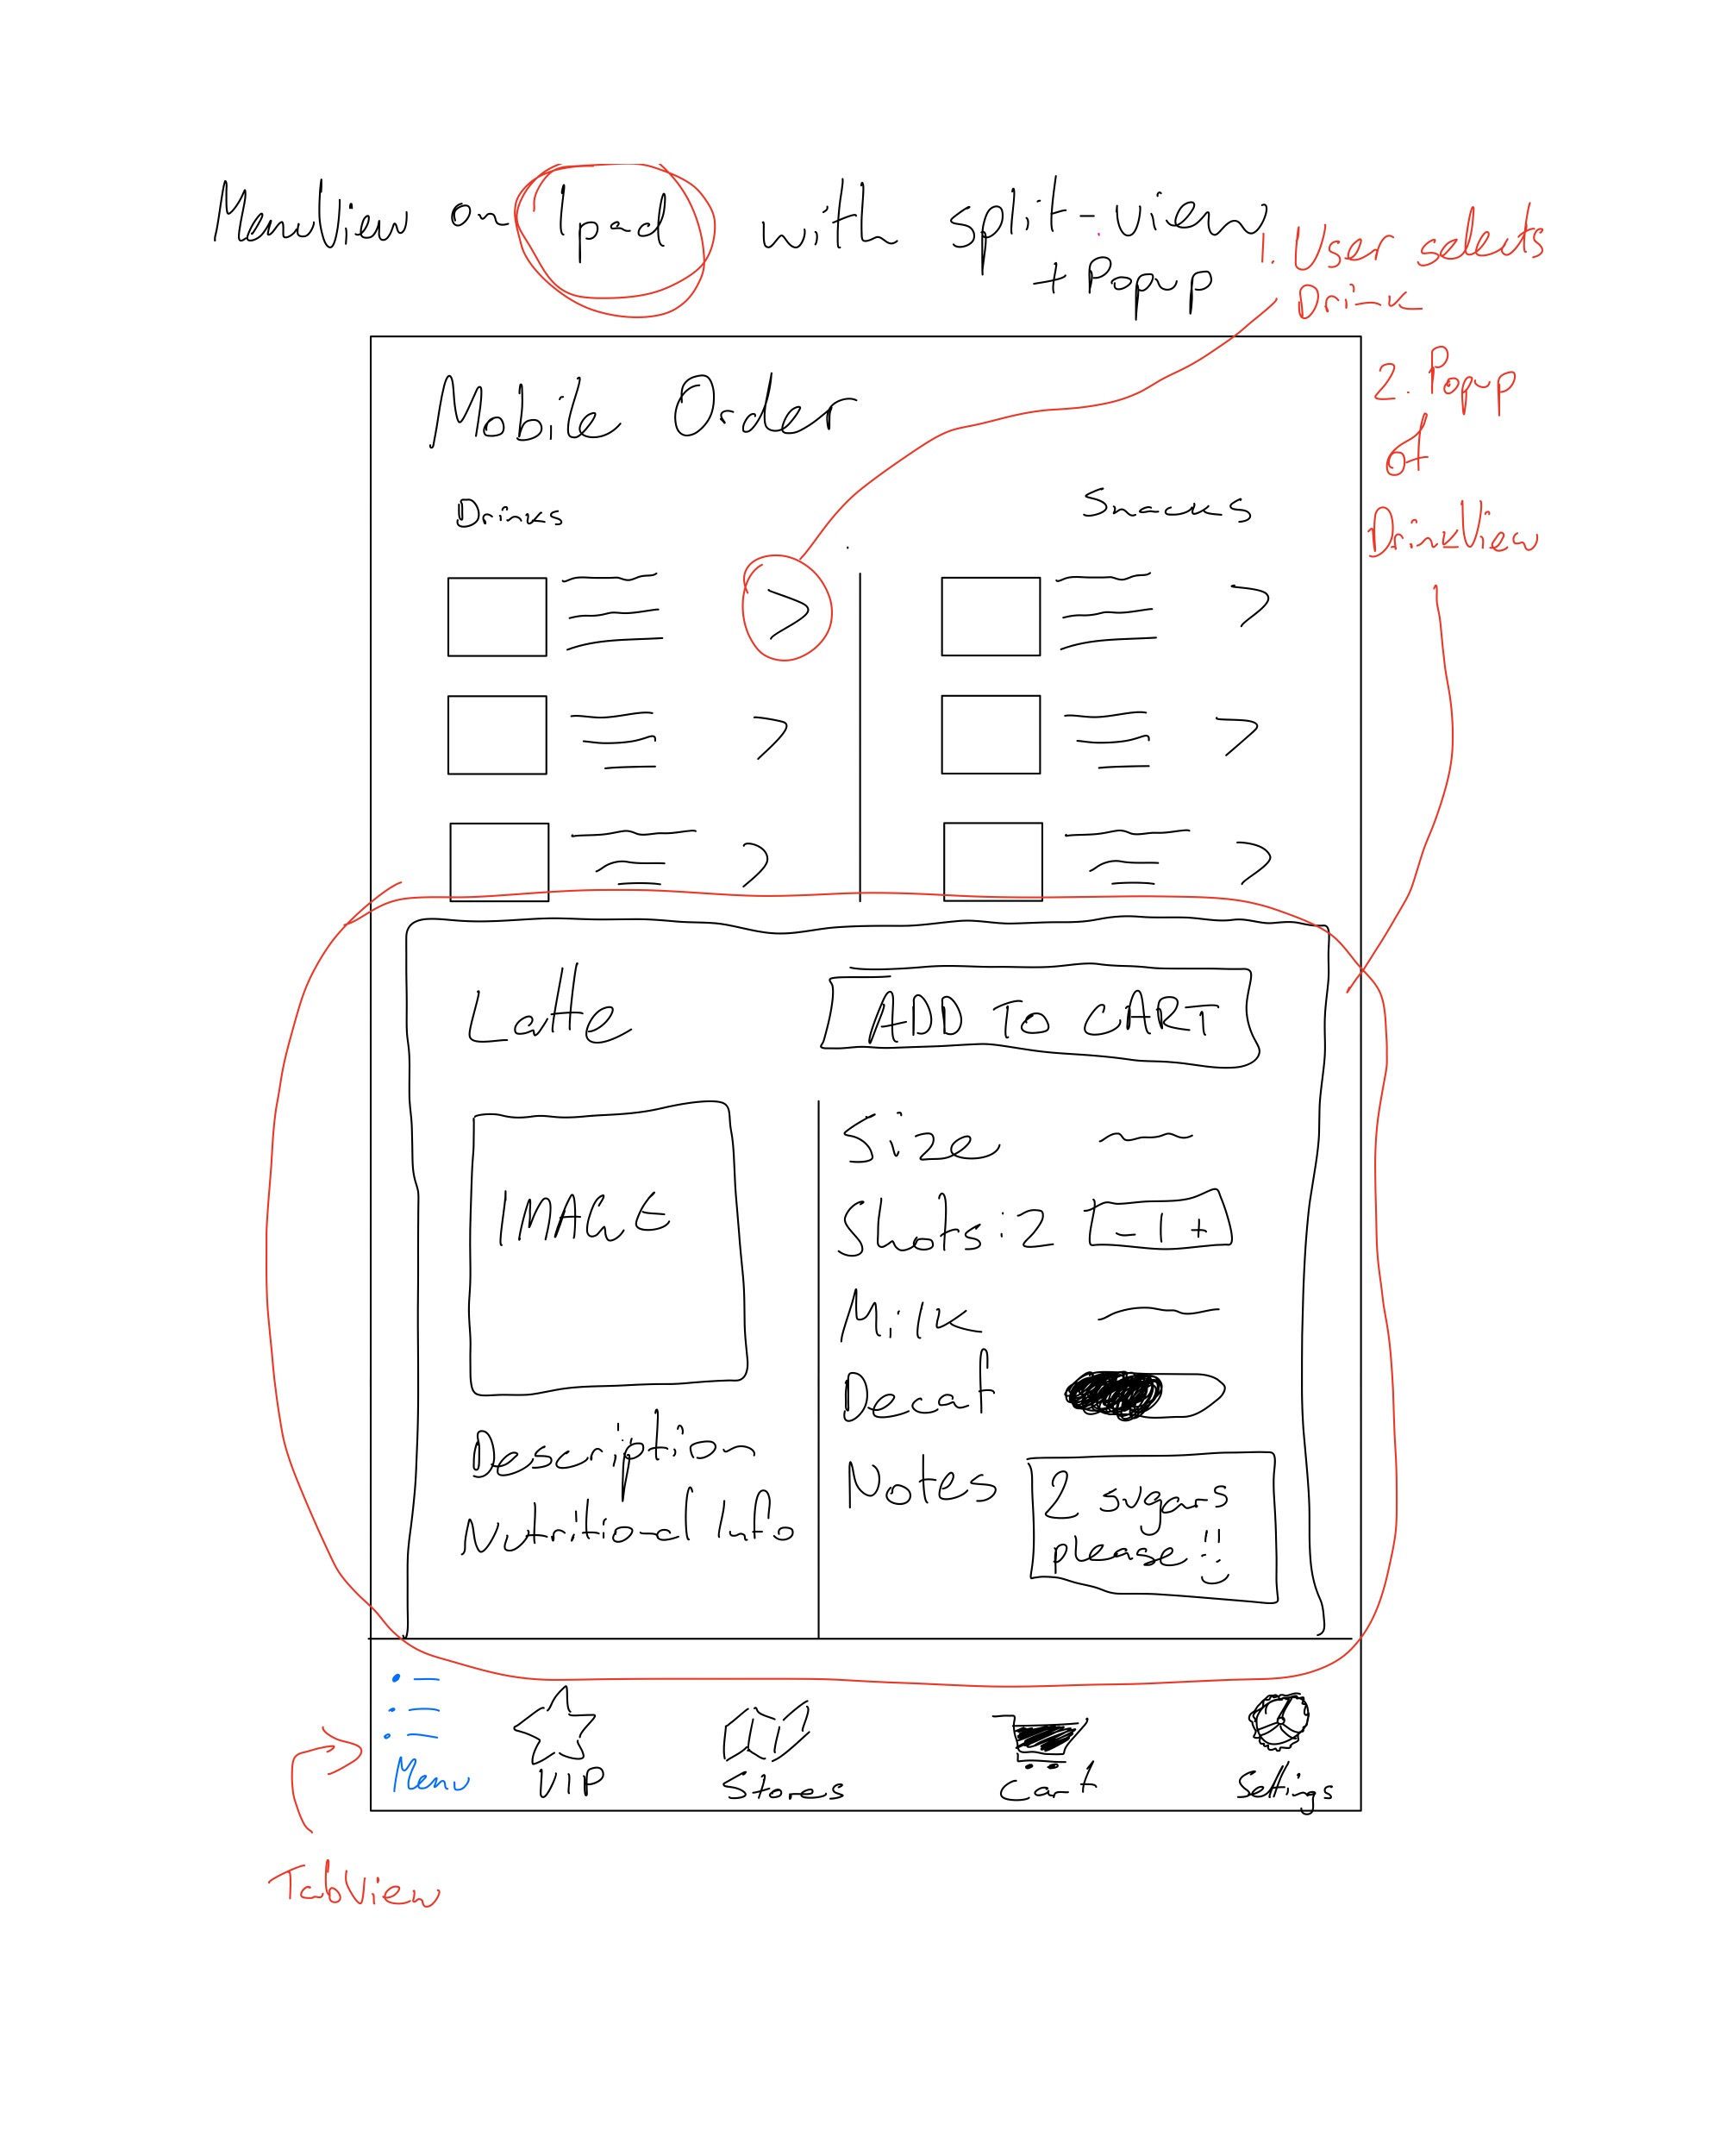 MenuView on Ipad with split-view
+ Popup
1. User selects
Drink
2. Popup
of
DrinkView
Mobile Order
Drinks
Snacks
Latte
ADD TO CART
IMAGE
Description
Nutritional Info
Size
Shots: 2
- | +
Milk
Decaf
Notes
2 sugars
please !!
Menu
VIP
Stores
Cart
Settings
TabView